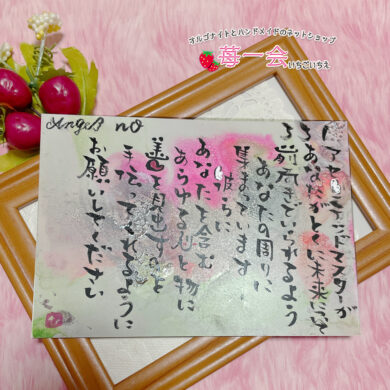 オルゴナイトとハンドメイドのネットショップ
苺一会
いちごいちえ
no
アセンデッドマスターが
あなたがとくに未来について
前向きでいられるよう
あなたの周りに
集まっています
彼らに
あなたを含む
あらゆる人と物に
善を見出すこと
手伝ってくれるように
お願いしてください